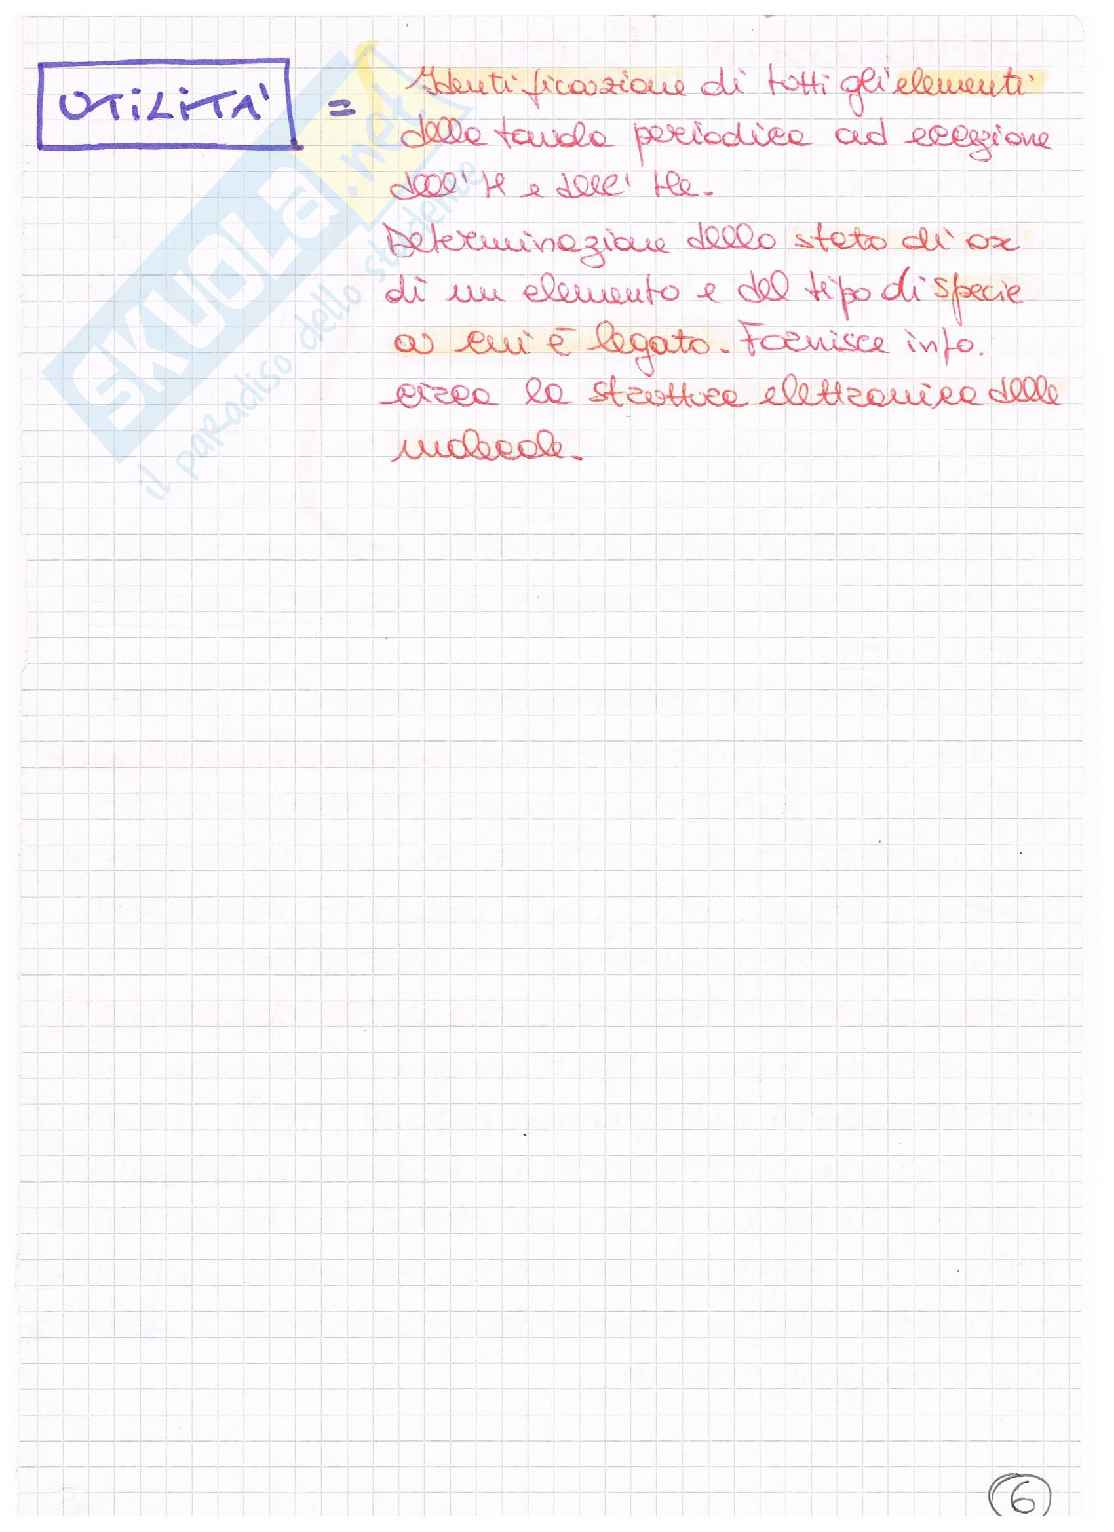 UTILITA' = Identificazione di tutti gli elementi
della tavola periodica ad eccezione
dell'H e dell'He.
Determinazione dello stato di ox
di un elemento e del tipo di specie
a cui è legato. Fornisce info.
circa la struttura elettronica delle
molecole.
SKUOLA.net
il paradiso dello studente
6